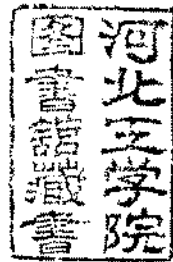 河北工学院
图書館藏書